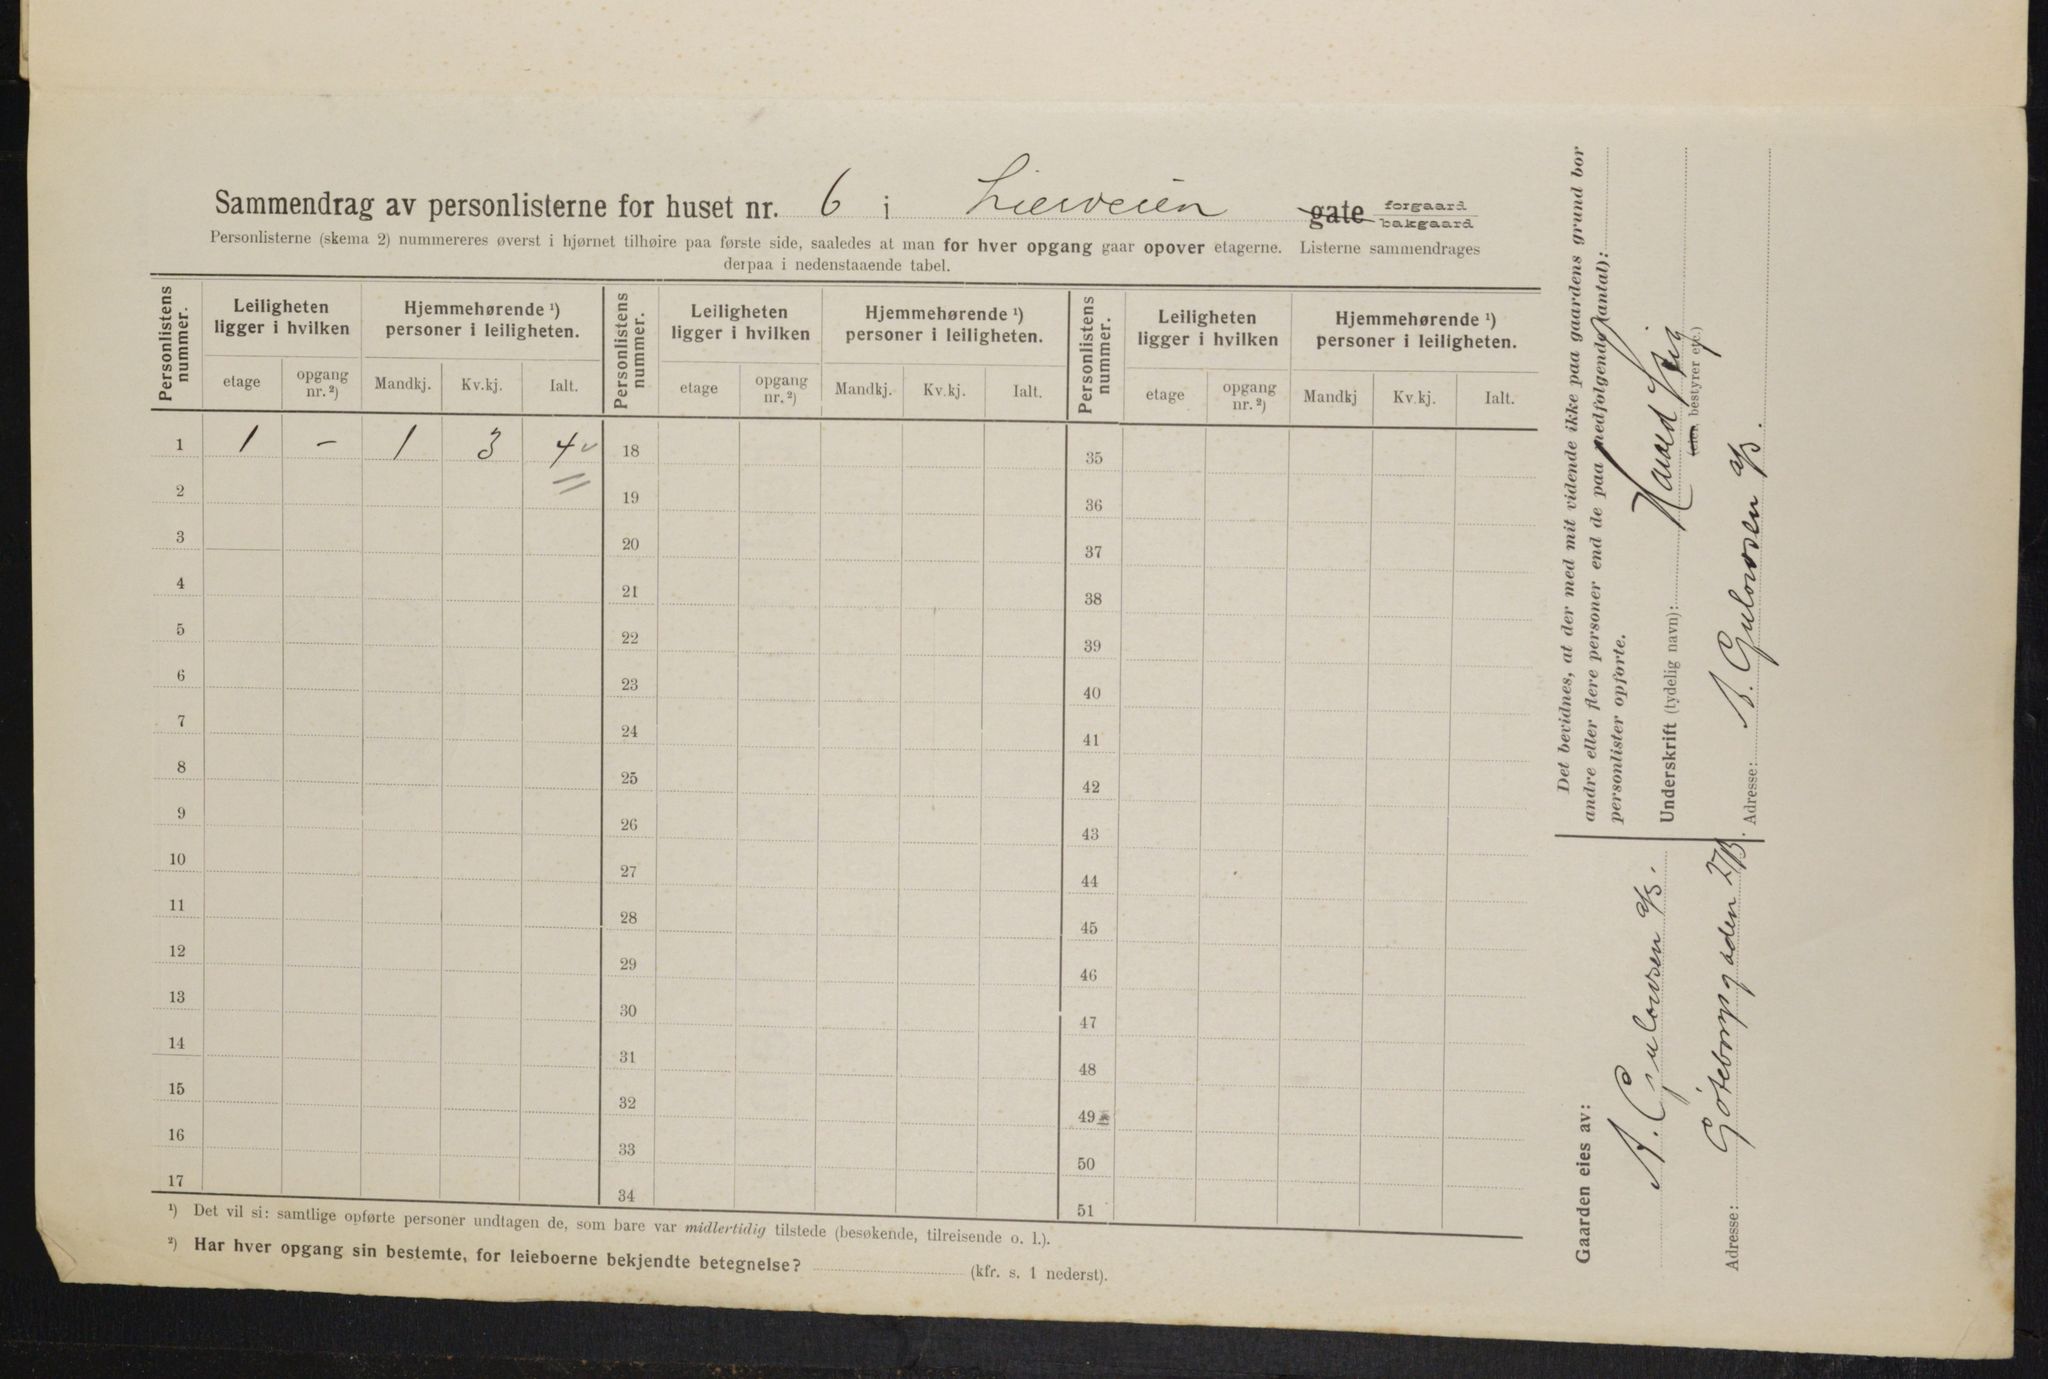 Sammendrag av personlisterne for huset nr. 6 i Lierveien gate forgaard bakgaard
Personlisterne (skema 2) nummereres øverst i hjørnet tilhøire paa første side, saaledes at man for hver opgang gaar opover etagerne. Listerne sammendrages
derpaa i nedenstaaende tabel.
Personlistens nummer. Leiligheten ligger i hvilken Hjemmehørende ¹) personer i leiligheten. Personlistens nummer. Leiligheten ligger i hvilken Hjemmehørende ¹) personer i leiligheten. Personlistens nummer. Leiligheten ligger i hvilken Hjemmehørende ¹) personer i leiligheten.
etage opgang nr. ²) Mandkj. Kv.kj. Ialt. etage opgang nr. ²) Mandkj. Kv.kj. Ialt. etage opgang nr. ²) Mandkj Kv.kj. Ialt.
1 1 – 1 3 4 18 35
2 19 36
3 20 37
4 21 38
5 22 39
6 23 40
7 24 41
8 25 42
9 26 43
10 27 44
11 28 45
12 29 46
13 30 47
14 31 48
15 32 49
16 33 50
17 34 51
¹) Det vil si: samtlige opførte personer undtagen de, som bare var midlertidig tilstede (besøkende, tilreisende o. l.).
²) Har hver opgang sin bestemte, for leieboerne bekjendte betegnelse? (kfr. s. 1 nederst).
Det bevidnes, at der med mit vidende ikke paa gaardens grund bor
andre eller flere personer end de paa nedfølgende (antal):
personlister opførte.
Underskrift (tydelig navn):
(eier, bestyrer etc.)
Adresse: A. Gulowsen A/S.
Gaarden eies av:
A. Gulowsen A/S.
Adresse: Göteborggaden 27B.